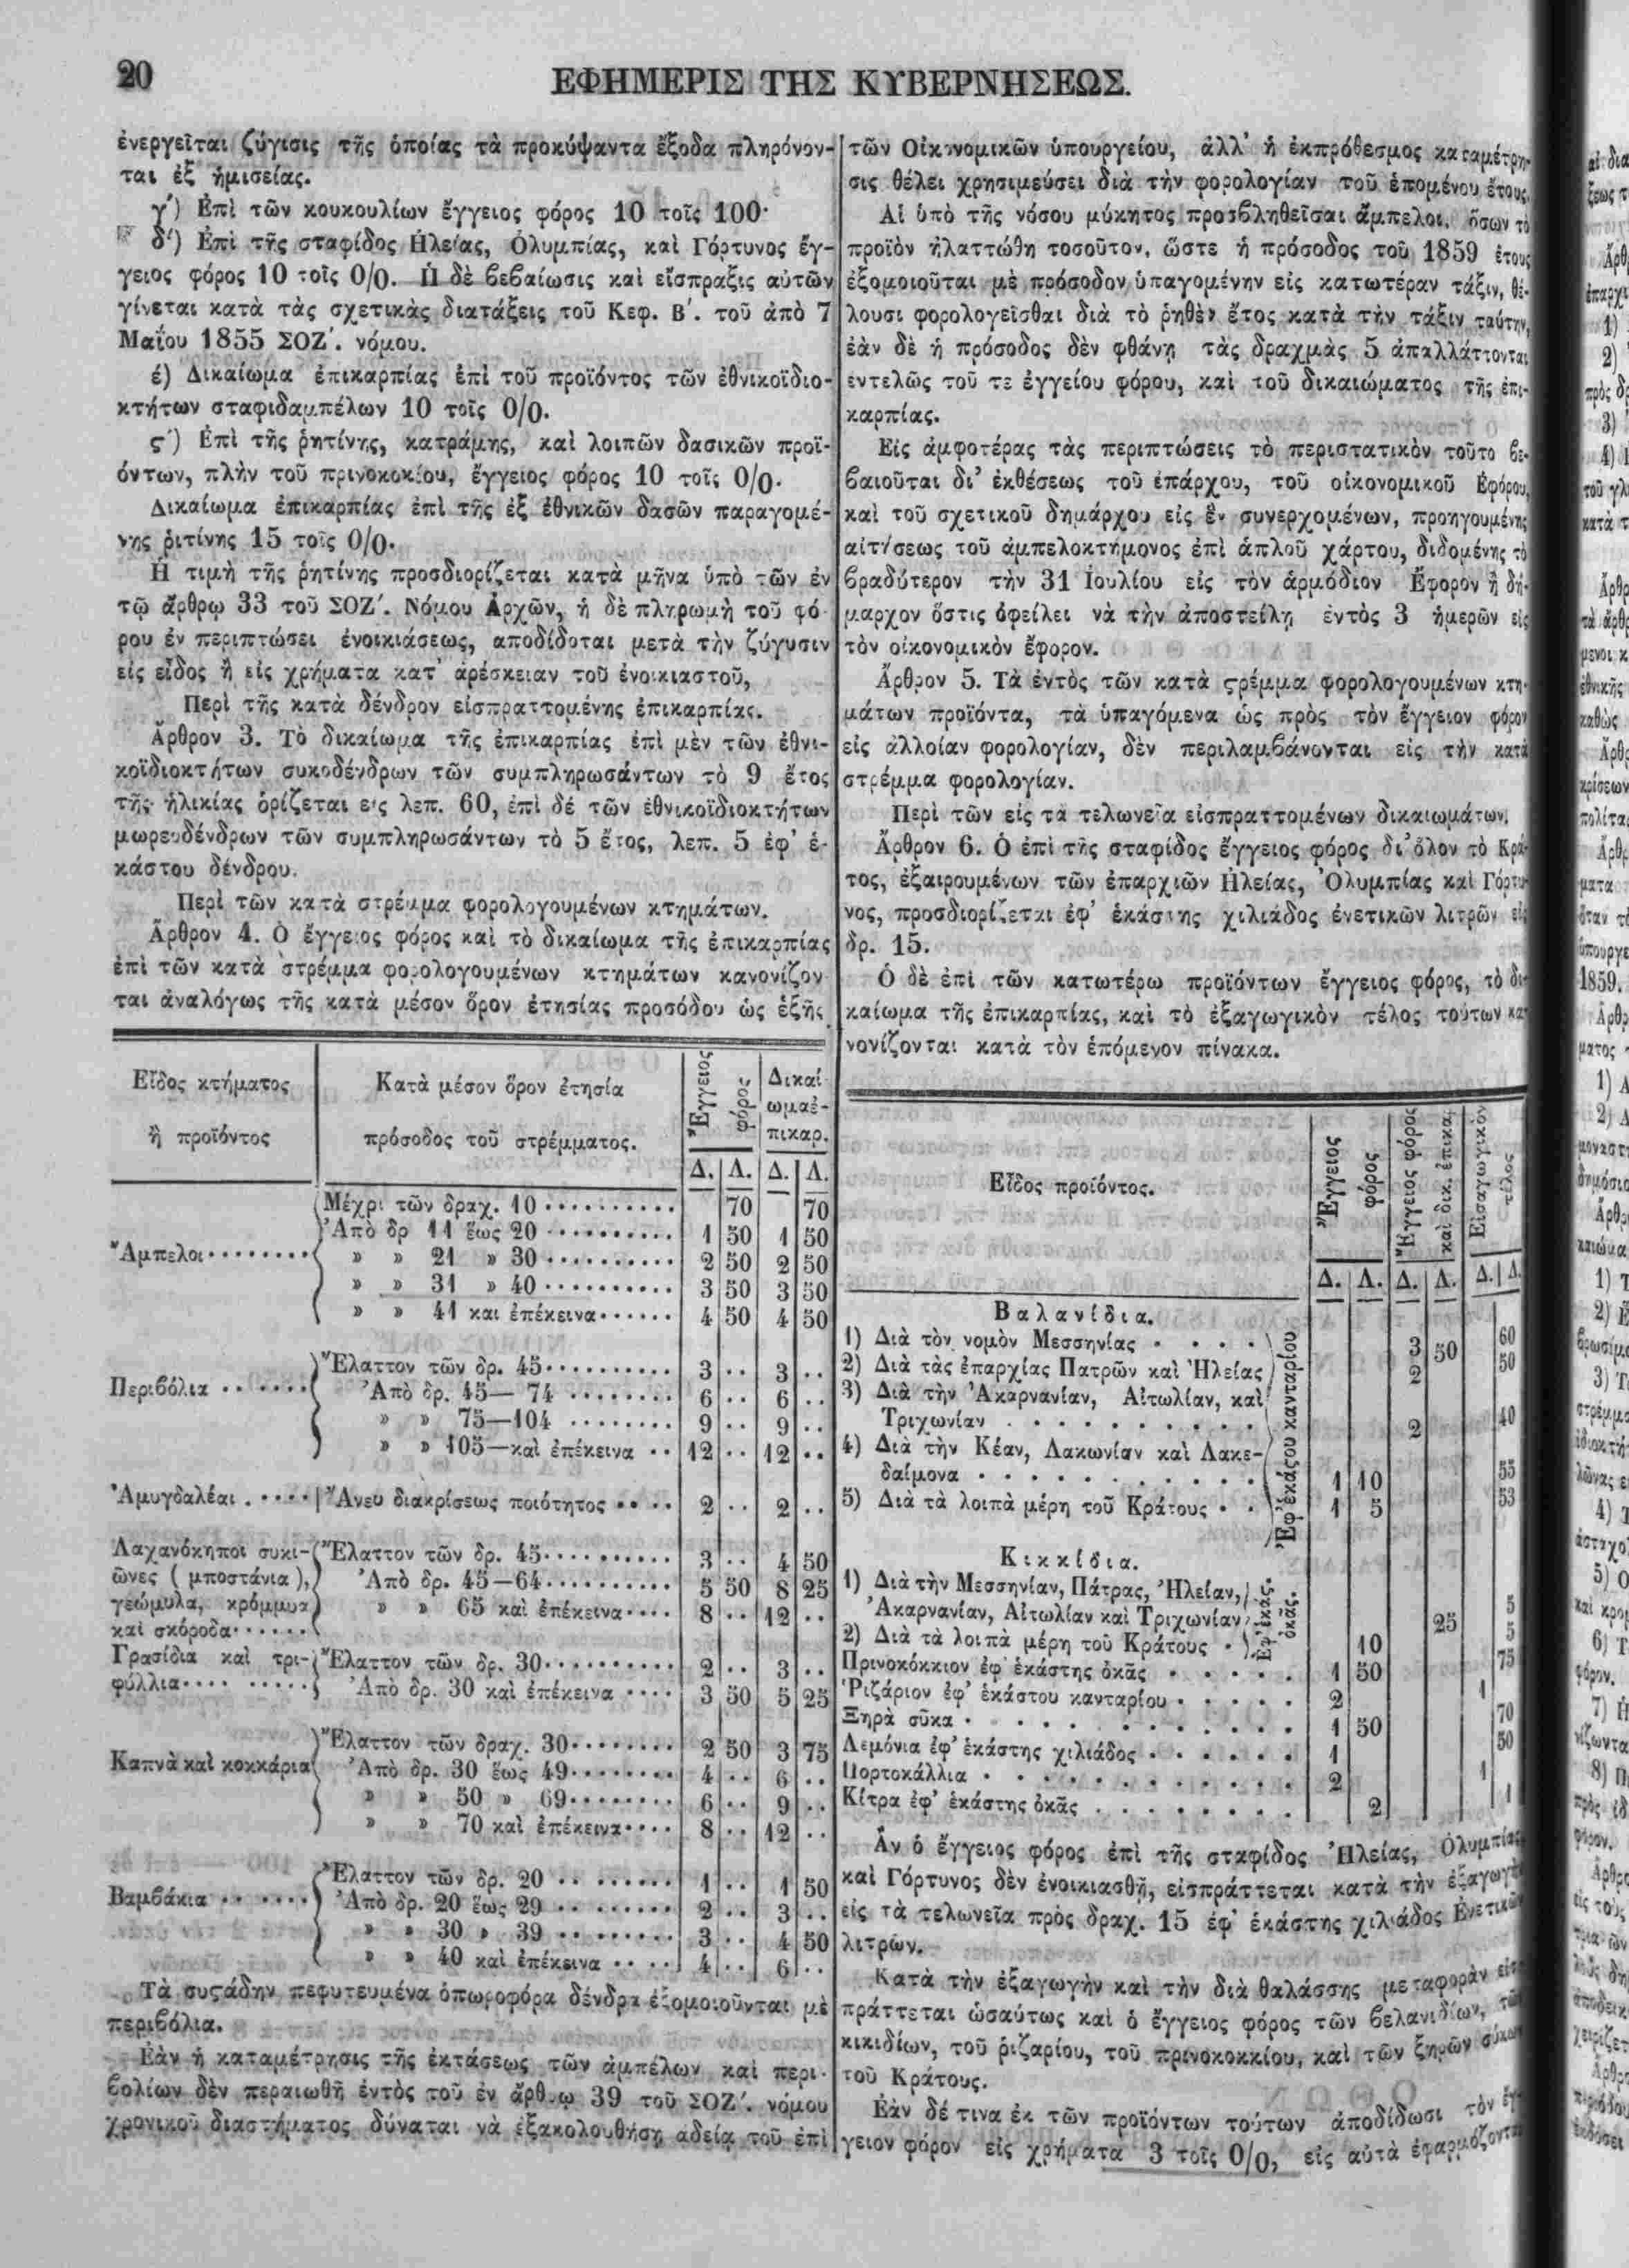 20
ΕΦΗΜΕΡΙΣ ΤΗΣ ΚΥΒΕΡΝΗΣΕΩΣ.
ἐνεργεῖται ζύγισις τῆς ὁποίας τὰ προκύψαντα ἔξοδα πληρόνον-
ται ἐξ ἡμισείας.
γ΄) Ἐπὶ τῶν κουκουλίων ἔγγειος φόρος 10 τοῖς 100·
δ΄) Ἐπὶ τῆς σταφίδος Ἠλείας, Ὀλυμπίας, καὶ Γόρτυνος ἔγ-
γειος φόρος 10 τοῖς 0/0. Ἡ δὲ βεβαίωσις καὶ εἴσπραξις αὐτῶν
γίνεται κατὰ τὰς σχετικὰς διατάξεις τοῦ Κεφ. Β΄. τοῦ ἀπὸ 7
Μαΐου 1855 ΣΟΖ΄. νόμου.
έ) Δικαίωμα ἐπικαρπίας ἐπὶ τοῦ προϊόντος τῶν ἐθνικοϊδιο-
κτήτων σταφιδαμπέλων 10 τοῖς 0/0.
ς΄) Ἐπὶ τῆς ῥητίνης, κατράμης, καὶ λοιπῶν δασικῶν προϊ-
όντων, πλὴν τοῦ πρινοκοκίου, ἔγγειος φόρος 10 τοῖς 0/0.
Δικαίωμα ἐπικαρπίας ἐπὶ τῆς ἐξ ἐθνικῶν δασῶν παραγομέ-
νης ῥιτίνης 15 τοῖς 0/0.
Ἡ τιμὴ τῆς ῥητίνης προσδιορίζεται κατὰ μῆνα ὑπὸ τῶν ἐν
τῷ ἄρθρῳ 33 τοῦ ΣΟΖ΄. Νόμου Ἀρχῶν, ἡ δὲ πληρωμὴ τοῦ φό-
ρου ἐν περιπτώσει ἐνοικιάσεως, ἀποδίδοται μετὰ τὴν ζύγυσιν
εἰς εἶδος ἢ εἰς χρήματα κατ᾽ ἀρέσκειαν τοῦ ἐνοικιαστοῦ,
Περὶ τῆς κατὰ δένδρον εἰσπραττομένης ἐπικαρπίας.
Ἄρθρον 3. Τὸ δικαίωμα τῆς ἐπικαρπίας ἐπὶ μὲν τῶν ἐθνι-
κοϊδιοκτήτων συκοδένδρων τῶν συμπληρωσάντων τὸ 9 ἔτος
τῆς ἡλικίας ὁρίζεται εἰς λεπ. 60, ἐπὶ δέ τῶν ἐθνικοϊδιοκτήτων
μωρεοδένδρων τῶν συμπληρωσάντων τὸ 5 ἔτος, λεπ. 5 ἐφ᾽ ἑ-
κάστου δένδρου.
Περὶ τῶν κατὰ στρέμμα φορολογουμένων κτημάτων.
Ἄρθρον 4. Ὁ ἔγγειος φόρος καὶ τὸ δικαίωμα τῆς ἐπικαρπίας
ἐπὶ τῶν κατὰ στρέμμα φορολογουμένων κτημάτων κανονίζον
ται ἀναλόγως τῆς κατὰ μέσον ὅρον ἐτησίας προσόδου ὡς ἑξῆς
Εἶδος κτήματος ἢ προϊόντος | Κατὰ μέσον ὅρον ἐτησία πρόσοδος τοῦ στρέμματος. | Ἔγγειος φόρος | Δικαίωμα ἐπικαρ.
Δ. Λ. Δ. Λ.
Μέχρι τῶν δραχ. 10 70 70
Ἀπὸ δρ 11 ἕως 20 1 50 1 50
Ἄμπελοι » » 21 » 30 2 50 2 50
» » 31 » 40 3 50 3 50
» » 41 και ἐπέκεινα 4 50 4 50
Ἔλαττον τῶν δρ. 45 3 .. 3 ..
Περιβόλια Ἀπὸ δρ. 45—74 6 .. 6 ..
» » 75—104 9 .. 9 ..
» » 105—καὶ ἐπέκεινα 12 .. 12 ..
Ἀμυγδαλέαι Ἄνευ διακρίσεως ποιότητος 2 .. 2 ..
Λαχανόκηποι συκι- Ἔλαττον τῶν δρ. 45 3 .. 4 50
ῶνες (μποστάνια), Ἀπὸ δρ. 45—64 5 50 8 25
γεώμυλα, κρόμμυα » » 65 καὶ ἐπέκεινα 8 .. 12 ..
καὶ σκόροδα
Γρασίδια καὶ τρι- Ἔλαττον τῶν δρ. 30 2 .. 3 ..
φύλλια Ἀπὸ δρ. 30 καὶ ἐπέκεινα 3 50 5 25
Ἔλαττον τῶν δραχ. 30 2 50 3 75
Καπνὰ καὶ κοκκάρια Ἀπὸ δρ. 30 ἕως 49 4 .. 6 ..
» » 50 » 69 6 .. 9 ..
» » 70 καὶ ἐπέκεινα 8 .. 12 ..
Ἔλαττον τῶν δρ. 20 1 .. 1 50
Βαμβάκια Ἀπὸ δρ. 20 ἕως 29 2 .. 3 ..
» » 30 » 39 3 .. 4 50
» » 40 καὶ ἐπέκεινα 4 .. 6 ..
Τὰ συστάδην πεφυτευμένα ὀπωροφόρα δένδρα ἐξομοιοῦνται μὲ
περιβόλια.
Ἐὰν ἡ καταμέτρησις τῆς ἐκτάσεως τῶν ἀμπέλων καὶ περι-
βολίων δὲν περαιωθῇ ἐντὸς τοῦ ἐν ἄρθρῳ 39 τοῦ ΣΟΖ΄. νόμου
χρονικοῦ διαστήματος δύναται νὰ ἐξακολουθήσῃ ἀδείᾳ τοῦ ἐπὶ
τῶν Οἰκονομικῶν ὑπουργείου, ἀλλ᾽ ἡ ἐκπρόθεσμος καταμέτρη-
σις θέλει χρησιμεύσει διὰ τὴν φορολογίαν τοῦ ἑπομένου ἔτους.
Αἱ ὑπὸ τῆς νόσου μύκητος προσβληθεῖσαι ἄμπελοι, ὅσων τὸ
προϊὸν ἠλαττώθη τοσοῦτον, ὥστε ἡ πρόσοδος τοῦ 1859 ἔτους
ἐξομοιοῦται μὲ πρόσοδον ὑπαγομένην εἰς κατωτέραν τάξιν, θέ-
λουσι φορολογεῖσθαι διὰ τὸ ῥηθὲν ἔτος κατὰ τὴν τάξιν ταύτην,
ἐὰν δὲ ἡ πρόσοδος δὲν φθάνῃ τὰς δραχμὰς 5 ἀπαλλάττονται
ἐντελῶς τοῦ τε ἐγγείου φόρου, καὶ τοῦ δικαιώματος τῆς ἐπι-
καρπίας.
Εἰς ἀμφοτέρας τὰς περιπτώσεις τὸ περιστατικὸν τοῦτο βε-
βαιοῦται δι᾽ ἐκθέσεως τοῦ ἐπάρχου, τοῦ οἰκονομικοῦ Ἐφόρου,
καὶ τοῦ σχετικοῦ δημάρχου εἰς ἓν συνερχομένων, προηγουμένης
αἰτήσεως τοῦ ἀμπελοκτήμονος ἐπὶ ἁπλοῦ χάρτου, διδομένης τὸ
βραδύτερον τὴν 31 Ἰουλίου εἰς τὸν ἁρμόδιον Ἔφορον ἢ δή-
μαρχον ὅστις ὀφείλει νὰ τὴν ἀποστείλῃ ἐντὸς 3 ἡμερῶν εἰς
τὸν οἰκονομικὸν ἔφορον.
Ἄρθρον 5. Τὰ ἐντὸς τῶν κατὰ στρέμμα φορολογουμένων κτη-
μάτων προϊόντα, τὰ ὑπαγόμενα ὡς πρὸς τὸν ἔγγειον φόρον
εἰς ἀλλοίαν φορολογίαν, δὲν περιλαμβάνονται εἰς τὴν κατὰ
στρέμμα φορολογίαν.
Περὶ τῶν εἰς τὰ τελωνεῖα εἰσπραττομένων δικαιωμάτων.
Ἄρθρον 6. Ὁ ἐπὶ τῆς σταφίδος ἔγγειος φόρος δι᾽ ὅλον τὸ Κρά-
τος, ἐξαιρουμένων τῶν ἐπαρχιῶν Ἠλείας, Ὀλυμπίας καὶ Γόρτυ-
νος, προσδιορίζεται ἐφ᾽ ἑκάστης χιλιάδος ἐνετικῶν λιτρῶν εἰς
δρ. 15.
Ὁ δὲ ἐπὶ τῶν κατωτέρω προϊόντων ἔγγειος φόρος, τὸ δι-
καίωμα τῆς ἐπικαρπίας, καὶ τὸ ἐξαγωγικὸν τέλος τούτων κα-
νονίζονται κατὰ τὸν ἑπόμενον πίνακα.
Εἶδος προϊόντος. | Ἔγγειος φόρος | Ἔγγειος φόρος καὶ δικ. ἐπικαρ. | Εἰσαγωγικὸν τέλος
Δ. Λ. Δ. Λ. Δ. Λ.
Βαλανίδια.
1) Διὰ τὸν νομὸν Μεσσηνίας 3 50 60
2) Διὰ τὰς ἐπαρχίας Πατρῶν καὶ Ἠλείας 2 50
3) Διὰ τὴν Ἀκαρνανίαν, Αἰτωλίαν, καὶ
Τριχωνίαν 2 40
4) Διὰ τὴν Κέαν, Λακωνίαν καὶ Λακε-
δαίμονα 1 10 55
5) Διὰ τὰ λοιπὰ μέρη τοῦ Κράτους 1 5 53
Ἐφ᾽ ἑκάστου κανταρίου
Κικκίδια.
1) Διὰ τὴν Μεσσηνίαν, Πάτρας, Ἠλείαν,
Ἀκαρνανίαν, Αἰτωλίαν καὶ Τριχωνίαν 25 5
2) Διὰ τὰ λοιπὰ μέρη τοῦ Κράτους 10 5
Ἐφ᾽ ἑκάς. ὀκᾶς.
Πρινοκόκκιον ἐφ᾽ ἑκάστης ὀκᾶς 1 50 75
Ῥιζάριον ἐφ᾽ ἑκάστου κανταρίου 2 1
Ξηρὰ σῦκα 1 50 70
Λεμόνια ἐφ᾽ ἑκάστης χιλιάδος 1 50
Πορτοκάλλια 2 1
Κίτρα ἐφ᾽ ἑκάστης ὀκᾶς 2 1
Ἂν ὁ ἔγγειος φόρος ἐπὶ τῆς σταφίδος Ἠλείας, Ὀλυμπίας
καὶ Γόρτυνος δὲν ἐνοικιασθῇ, εἰσπράττεται κατὰ τὴν ἐξαγωγὴν
εἰς τὰ τελωνεῖα πρὸς δραχ. 15 ἐφ᾽ ἑκάστης χιλιάδος Ἐνετικῶν
λιτρῶν.
Κατὰ τὴν ἐξαγωγὴν καὶ τὴν διὰ θαλάσσης μεταφορὰν εἰσ-
πράττεται ὡσαύτως καὶ ὁ ἔγγειος φόρος τῶν βελανιδίων, τῶν
κικιδίων, τοῦ ῥιζαρίου, τοῦ πρινοκοκκίου, καὶ τῶν ξηρῶν σύκων
τοῦ Κράτους.
Ἐὰν δέ τινα ἐκ τῶν προϊόντων τούτων ἀποδίδωσι τὸν ἔγ-
γειον φόρον εἰς χρήματα 3 τοῖς 0/0, εἰς αὐτὰ ἐφαρμόζονται